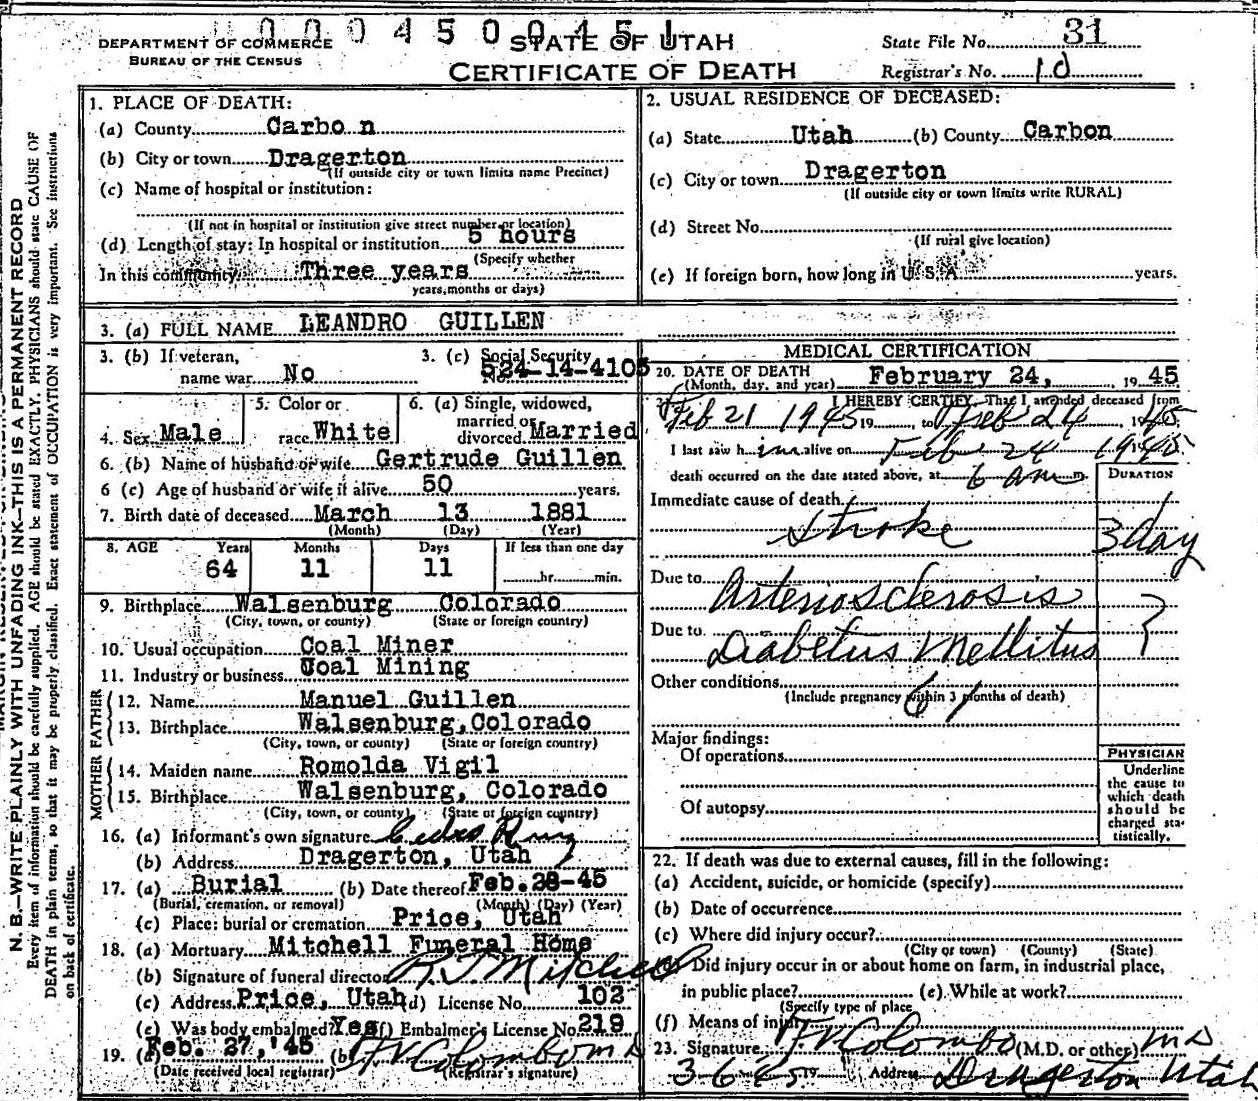 000450045 1
DEPARTMENT OF COMMERCE
BUREAU OF THE CENSUS
STATE OF UTAH
CERTIFICATE OF DEATH
State File No. 31
Registrar's No. 10
N. B.—WRITE PLAINLY WITH UNFADING INK—THIS IS A PERMANENT RECORD
Every item of information should be carefully supplied. AGE should be stated EXACTLY. PHYSICIANS should state CAUSE OF
DEATH in plain terms, so that it may be properly classified. Exact statement of OCCUPATION is very important. See instructions
on back of certificate.
1. PLACE OF DEATH:
(a) County Carbo n
(b) City or town Dragerton
(If outside city or town limits name Precinct)
(c) Name of hospital or institution:
(If not in hospital or institution give street number or location)
(d) Length of stay: In hospital or institution 5 hours
(Specify whether
In this community Three years
years, months or days)
2. USUAL RESIDENCE OF DECEASED:
(a) State Utah (b) County Carbon
(c) City or town Dragerton
(If outside city or town limits write RURAL)
(d) Street No.
(If rural give location)
(e) If foreign born, how long in U. S. A. years.
3. (a) FULL NAME LEANDRO GUILLEN
3. (b) If veteran, name war No
3. (c) Social Security No. 524-14-4105
4. Sex Male
5. Color or race White
6. (a) Single, widowed, married or divorced Married
6. (b) Name of husband or wife Gertrude Guillen
6 (c) Age of husband or wife if alive 50 years.
7. Birth date of deceased March 13 1881
(Month) (Day) (Year)
8. AGE Years Months Days If less than one day
64 11 11 hr. min.
9. Birthplace Walsenburg Colorado
(City, town, or county) (State or foreign country)
10. Usual occupation Coal Miner
11. Industry or business Coal Mining
FATHER
12. Name Manuel Guillen
13. Birthplace Walsenburg, Colorado
(City, town, or county) (State or foreign country)
MOTHER
14. Maiden name Romolda Vigil
15. Birthplace Walsenburg, Colorado
(City, town, or county) (State or foreign country)
16. (a) Informant's own signature
(b) Address Dragerton, Utah
17. (a) Burial (b) Date thereof Feb. 28-45
(Burial, cremation, or removal) (Month) (Day) (Year)
(c) Place: burial or cremation Price, Utah
18. (a) Mortuary Mitchell Funeral Home
(b) Signature of funeral director R. J. Mitchell
(c) Address Price, Utah (d) License No. 102
(e) Was body embalmed? Yes (f) Embalmer's License No. 219
19. (a) Feb. 27, '45 (b) F V Colombo MD
(Date received local registrar) (Registrar's signature)
MEDICAL CERTIFICATION
20. DATE OF DEATH
(Month, day, and year) February 24, 1945
I HEREBY CERTIFY, That I attended deceased from
Feb 21 1945 19 , to Feb 24 , 1945
I last saw him alive on Feb 24 1945
death occurred on the date stated above, at 6 am m.
DURATION
Immediate cause of death
Stroke 3 day
Due to Arteriosclerosis
Due to Diabetus Mellitus ?
Other conditions
(Include pregnancy within 3 months of death)
Major findings:
Of operations
Of autopsy
PHYSICIAN
Underline
the cause to
which death
should be
charged sta-
tistically.
22. If death was due to external causes, fill in the following:
(a) Accident, suicide, or homicide (specify)
(b) Date of occurrence
(c) Where did injury occur?
(City or town) (County) (State)
Did injury occur in or about home on farm, in industrial place,
in public place? (e) While at work?
(Specify type of place
(f) Means of injury
23. Signature F V Colombo (M.D. or other) MD
3-6-45 19 Address Dragerton Utah